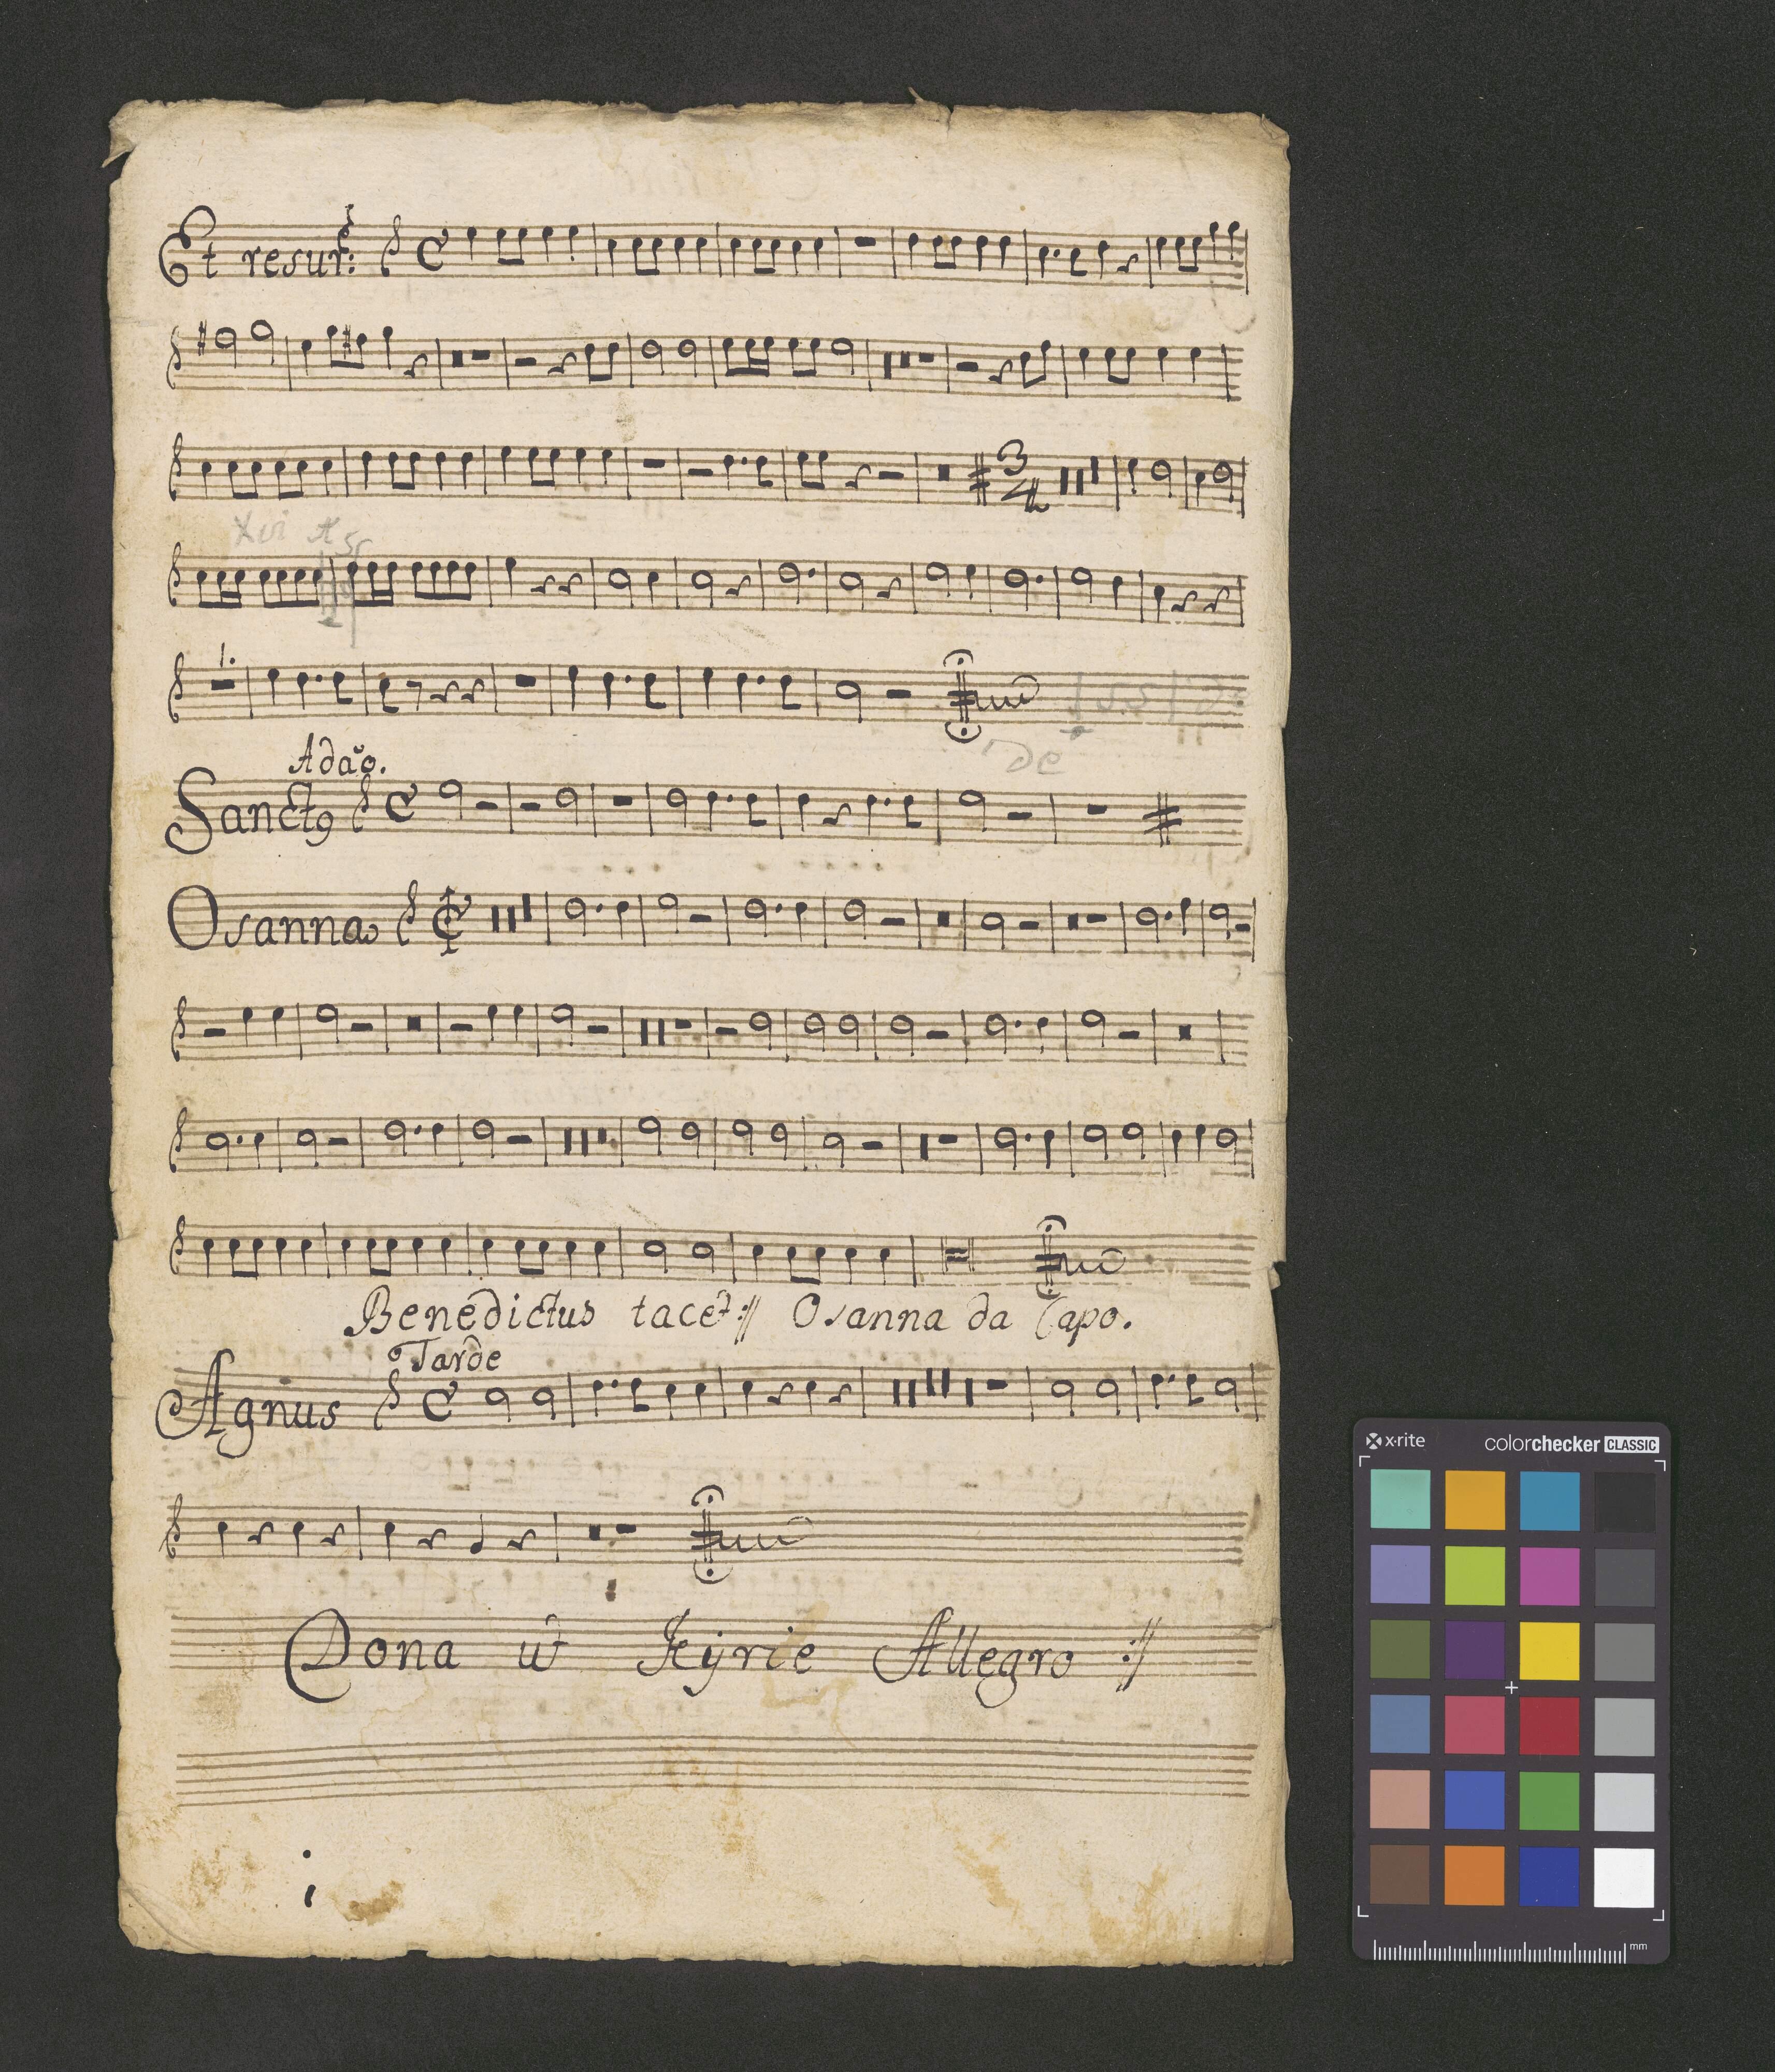 Et resur:
3
4
1.
de
Adaᵒ.
Sanctꝯ
Osanna
Benedictus tacet :// Osanna da Capo.
Tarde
Agnus
Dona ut Kyrie Allegro ://
x·rite colorchecker CLASSIC
mm